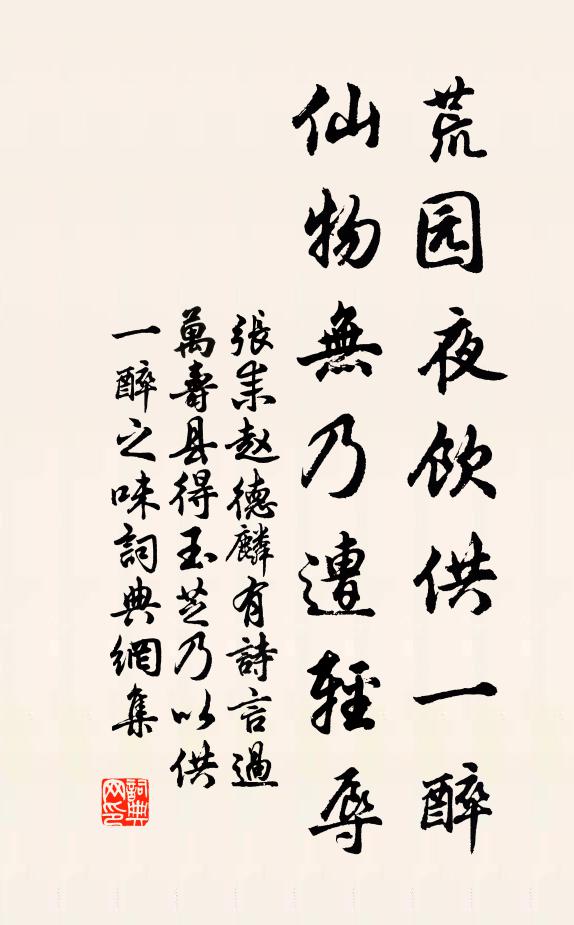 荒园夜飲供一醉
仙物無乃遭輕辱
張耒赵德麟有詩言過
萬壽县得玉芝乃以供
一醉之味詞典網集
詞典网印